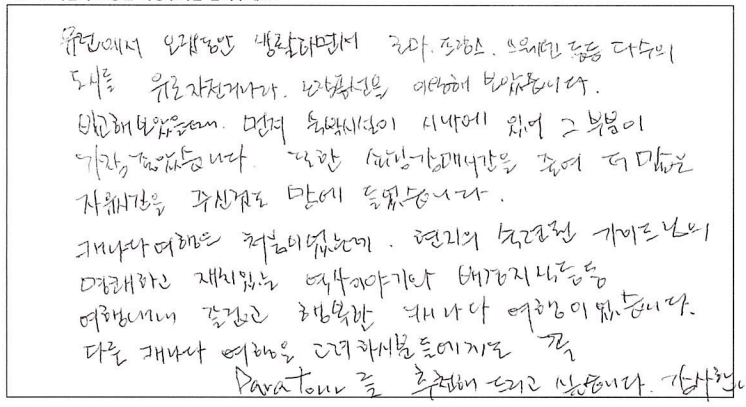 유럽에서 오랫동안 생활하면서 로마. 프랑스. 스웨덴 등등 다수의
도시를 유로자전거나라. 노랑풍선을 이용해 보았습니다.
비교해 보았을때. 먼저 숙박시설이 시내에 있어 그 부분이
가장 좋았습니다. 또한 쇼핑강매시간을 줄여 더 많은
자유시간을 주신점도 맘에 들었습니다.
캐나다여행은 처음이었는데. 현지의 숙련된 가이드님의
명쾌하고 재치있는 역사이야기와 배경지식등등
여행내내 즐겁고 행복한 캐나다 여행이었습니다.
다른 캐나다 여행을 고려하시분들에게도 꼭
ParaTour를 추천해 드리고 싶습니다. 감사합니